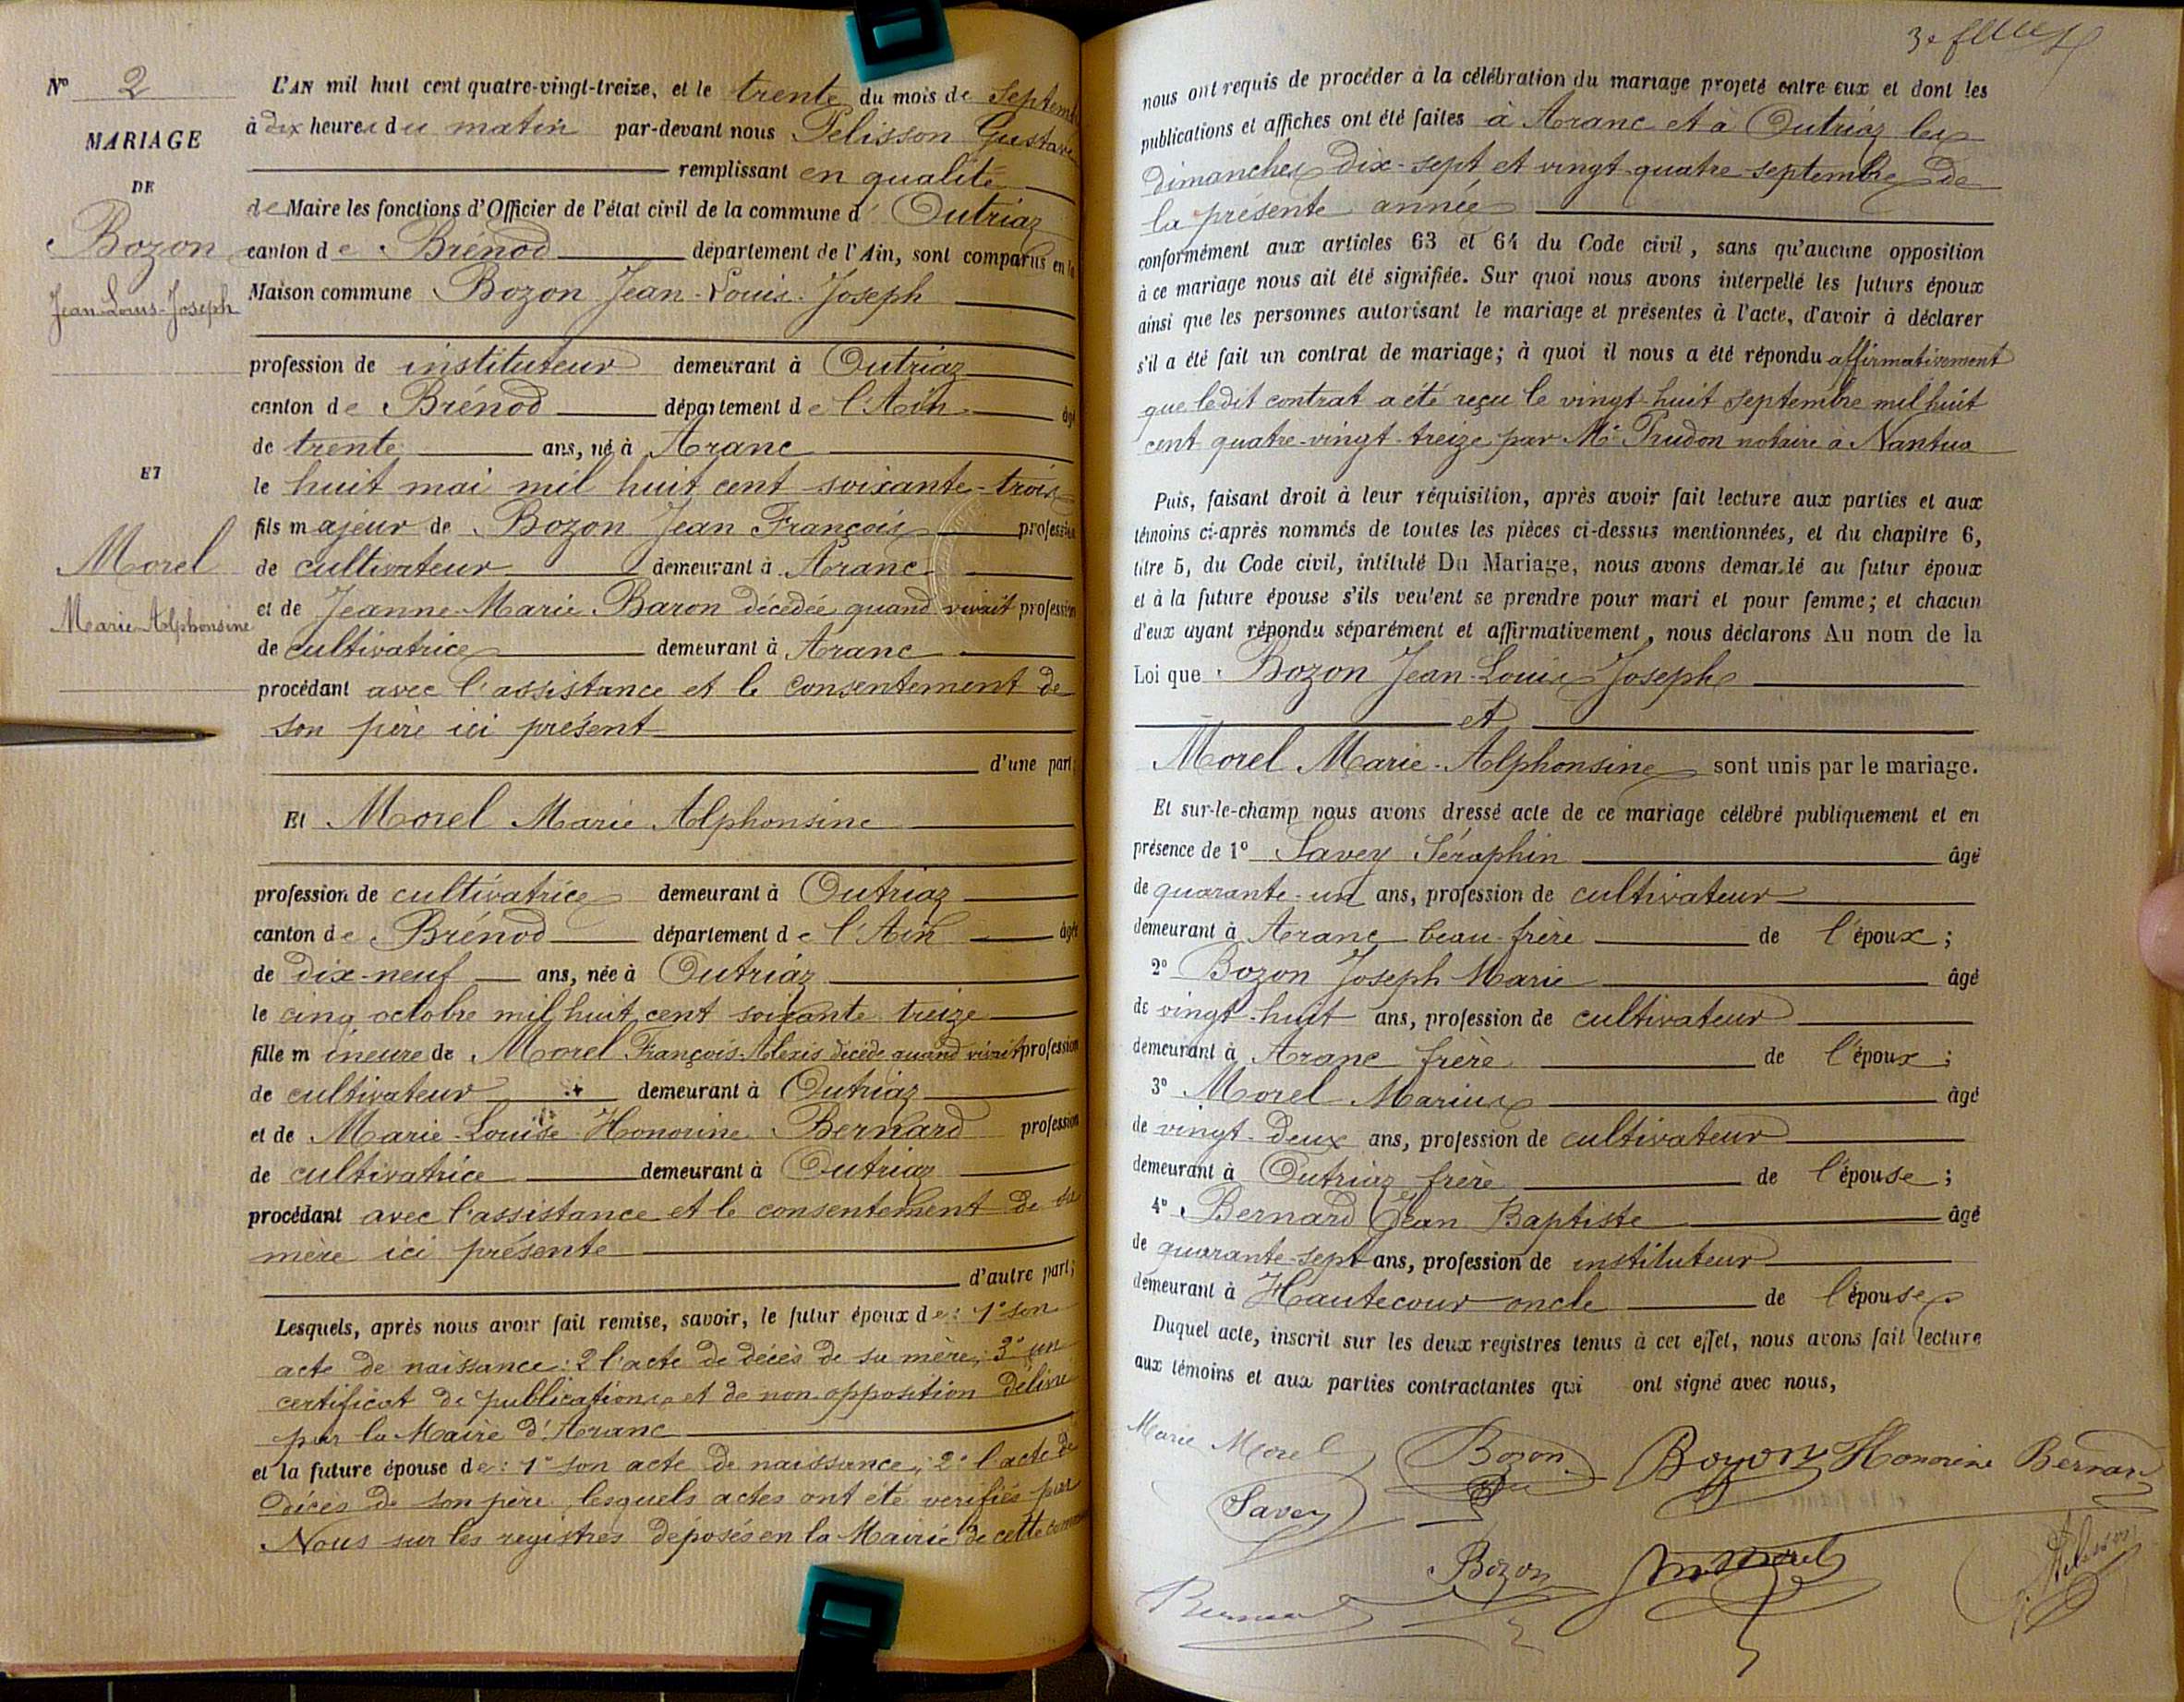 N° 2
MARIAGE
DE
Bozon
Jean-Louis-Joseph
ET
Morel
Marie-Alphonsine
L'AN mil huit cent quatre-vingt-treize, et le trente du mois de Septemb
à dix heures du matin par-devant nous Pelisson Gustave
remplissant en qualité
de Maire les fonctions d'Officier de l'état civil de la commune d' Outriaz
canton de Brénod département de l'Ain, sont comparus en la
Maison commune Bozon Jean-Louis-Joseph
profession de instituteur demeurant à Outriaz
canton de Brénod département de l'Ain âgé
de trente ans, né à Aranc
le huit mai mil huit cent soixante-trois
fils majeur de Bozon Jean François profession
de cultivateur demeurant à Aranc
et de Jeanne-Marie Baron décédée quand vivait profession
de cultivatrice demeurant à Aranc
procédant avec l'assistance et le consentement de
son père ici présent
d'une part;
Et Morel Marie Alphonsine
profession de cultivatrice demeurant à Outriaz
canton de Brénod département de l'Ain âgée
de dix-neuf ans, née à Outriaz
le cinq octobre mil huit cent soixante treize
fille mineure de Morel François-Alexis décédé quand vivait profession
de cultivateur demeurant à Outriaz
et de Marie-Louise-Honorine Bernard profession
de cultivatrice demeurant à Outriaz
procédant avec l'assistance et le consentement de sa
mère ici présente
d'autre part;
Lesquels, après nous avoir fait remise, savoir, le futur époux de: 1° son
acte de naissance: 2 l'acte de décès de sa mère; 3° un
certificat de publications et de non opposition délivré
par la Maire d'Aranc
et la future épouse de: 1° son acte de naissance; 2° l'acte de
décès de son père lesquels actes ont été vérifiés par
Nous sur les registres déposés en la Mairie de cette commune
3e feuillet
nous ont requis de procéder à la célébration du mariage projeté entre eux et dont les
publications et affiches ont été faites à Aranc et à Outriaz les
dimanches dix-sept et vingt-quatre septembre de
la présente année
conformément aux articles 63 et 64 du Code civil, sans qu'aucune opposition
à ce mariage nous ait été signifiée. Sur quoi nous avons interpellé les futurs époux
ainsi que les personnes autorisant le mariage et présentes à l'acte, d'avoir à déclarer
s'il a été fait un contrat de mariage; à quoi il nous a été répondu affirmativement
que ledit contrat a été reçu le vingt-huit septembre mil huit
cent quatre-vingt-treize par Me Prudon notaire à Nantua
Puis, faisant droit à leur réquisition, après avoir fait lecture aux parties et aux
témoins ci-après nommés de toutes les pièces ci-dessus mentionnées, et du chapitre 6,
titre 5, du Code civil, intitulé Du Mariage, nous avons demandé au futur époux
et à la future épouse s'ils veulent se prendre pour mari et pour femme; et chacun
d'eux ayant répondu séparément et affirmativement, nous déclarons Au nom de la
Loi que Bozon Jean-Louis Joseph
et
Morel Marie-Alphonsine sont unis par le mariage.
Et sur-le-champ nous avons dressé acte de ce mariage célébré publiquement et en
présence de 1° Savey Séraphin âgé
de quarante-un ans, profession de cultivateur
demeurant à Aranc beau-frère de l'époux;
2° Bozon Joseph-Marie âgé
de vingt-huit ans, profession de cultivateur
demeurant à Aranc frère de l'époux;
3° Morel Marius âgé
de vingt-deux ans, profession de cultivateur
demeurant à Outriaz frère de l'épouse;
4° Bernard Jean Baptiste âgé
de quarante-sept ans, profession de instituteur
demeurant à Hautecour oncle de l'épouse
Duquel acte, inscrit sur les deux registres tenus à cet effet, nous avons fait lecture
aux témoins et aux parties contractantes qui ont signé avec nous,
Marie Morel Bozon Bozon Honorine Bernard
Savey
Bernard Bozon M. Morel Pelisson